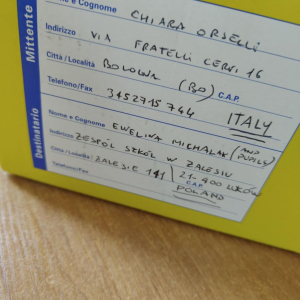 e Cognome CHIARA ORSELLI
Mittente
Indirizzo VIA FRATELLI CERVI 16
Città / Località BOLOGNA (BO) C.A.P.
Telefono/Fax 3452715744 ITALY
Destinatario
Nome e Cognome EWELINA MICHALAK (AND PUPILS)
Indirizzo ZESPÓŁ SZKÓŁ W ZALESIU
Città / Località ZALESIE 141 21-400 ŁUKÓW
Telefono/Fax C.A.P. POLAND